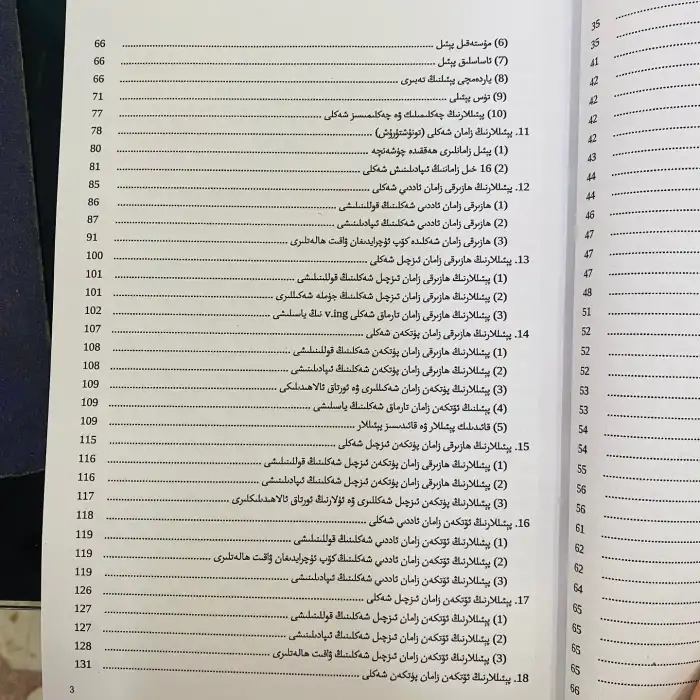 (6) مۇستەقىل پېئىل ........ 66
(7) ئاساسلىق پېئىل ........ 66
(8) ياردەمچى پېئىلنىڭ تەبىرى ........ 66
(9) تۈس پېئىلى ........ 71
(10) پېئىللارنىڭ چەكلىمىلىك ۋە چەكلىمىسىز شەكلى ........ 77
11. پېئىللارنىڭ زامان شەكلى (تونۇشتۇرۇش) ........ 78
(1) پېئىل زامانلىرى ھەققىدە چۈشەنچە ........ 80
(2) 16 خىل زاماننىڭ ئىپادىلىنىش شەكلى ........ 81
12. پېئىللارنىڭ ھازىرقى زامان ئاددىي شەكلى ........ 85
(1) ھازىرقى زامان ئاددىي شەكلىنىڭ قوللىنىلىشى ........ 86
(2) ھازىرقى زامان ئاددىي شەكلىنىڭ ئىپادىلىنىشى ........ 87
(3) ھازىرقى زامان شەكلىدە كۆپ ئۇچرايدىغان ۋاقىت ھالەتلىرى ........ 91
13. پېئىللارنىڭ ھازىرقى زامان ئىزچىل شەكلى ........ 100
(1) پېئىللارنىڭ ھازىرقى زامان ئىزچىل شەكلىنىڭ قوللىنىلىشى ........ 101
(2) پېئىللارنىڭ ھازىرقى زامان ئىزچىل شەكلىنىڭ جۈملە شەكىللىرى ........ 101
(3) پېئىللارنىڭ ھازىرقى زامان تارماق شەكلى v.ing نىڭ ياسىلىشى ........ 102
14. پېئىللارنىڭ ھازىرقى زامان پۈتكەن شەكلى ........ 107
(1) پېئىللارنىڭ ھازىرقى زامان پۈتكەن شەكلىنىڭ قوللىنىلىشى ........ 108
(2) پېئىللارنىڭ ھازىرقى زامان پۈتكەن شەكلىنىڭ ئىپادىلىنىشى ........ 108
(3) پېئىللارنىڭ پۈتكەن زامان شەكىللىرى ۋە ئورتاق ئالاھىدىلىكى ........ 109
(4) پېئىلنىڭ ئۆتكەن زامان تارماق شەكلىنىڭ ياسىلىشى ........ 109
(5) قائىدىلىك پېئىللار ۋە قائىدىسىز پېئىللار ........ 109
15. پېئىللارنىڭ ھازىرقى زامان پۈتكەن ئىزچىل شەكلى ........ 115
(1) پېئىللارنىڭ ھازىرقى زامان پۈتكەن ئىزچىل شەكلىنىڭ قوللىنىلىشى ........ 116
(2) پېئىللارنىڭ ھازىرقى زامان پۈتكەن ئىزچىل شەكلىنىڭ ئىپادىلىنىشى ........ 116
(3) پېئىللارنىڭ پۈتكەن ئىزچىل شەكىللىرى ۋە ئۇلارنىڭ ئورتاق ئالاھىدىلىكلىرى ........ 117
16. پېئىللارنىڭ ئۆتكەن زامان ئاددىي شەكلى ........ 118
(1) پېئىللارنىڭ ئۆتكەن زامان ئاددىي شەكلىنىڭ قوللىنىلىشى ........ 119
(2) پېئىللارنىڭ ئۆتكەن زامان ئاددىي شەكلىنىڭ كۆپ ئۇچرايدىغان ۋاقىت ھالەتلىرى ........ 119
(3) پېئىللارنىڭ ئۆتكەن زامان ئاددىي شەكلىنىڭ ئىپادىلىنىشى ........ 119
17. پېئىللارنىڭ ئۆتكەن زامان ئىزچىل شەكلى ........ 126
(1) پېئىللارنىڭ ئۆتكەن زامان ئىزچىل شەكلىنىڭ قوللىنىلىشى ........ 127
(2) پېئىللارنىڭ ئۆتكەن زامان ئىزچىل شەكلىنىڭ ئىپادىلىنىشى ........ 127
(3) پېئىللارنىڭ ئۆتكەن زامان ئىزچىل شەكلىنىڭ ۋاقىت ھالەتلىرى ........ 128
18. پېئىللارنىڭ ئۆتكەن زامان پۈتكەن شەكلى ........ 131
3
35
35
41
42
42
42
42
43
44
44
46
47
47
47
48
51
52
52
52
53
53
54
54
55
56
56
61
62
62
64
65
65
65
65
66